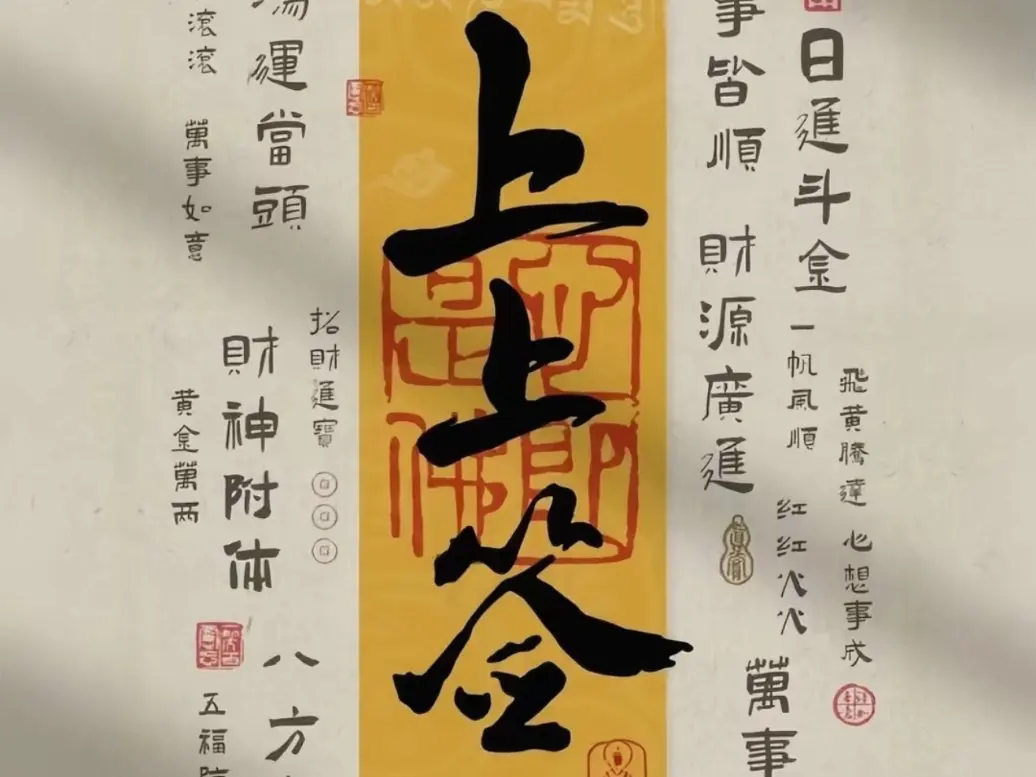 日進斗金
一帆風順
飛黃騰達
心想事成
红红火火
事皆順
財源廣進
萬事
上上签
運當頭
滾滾
萬事如意
招財進寶
財神附体
黄金萬两
八方
五福